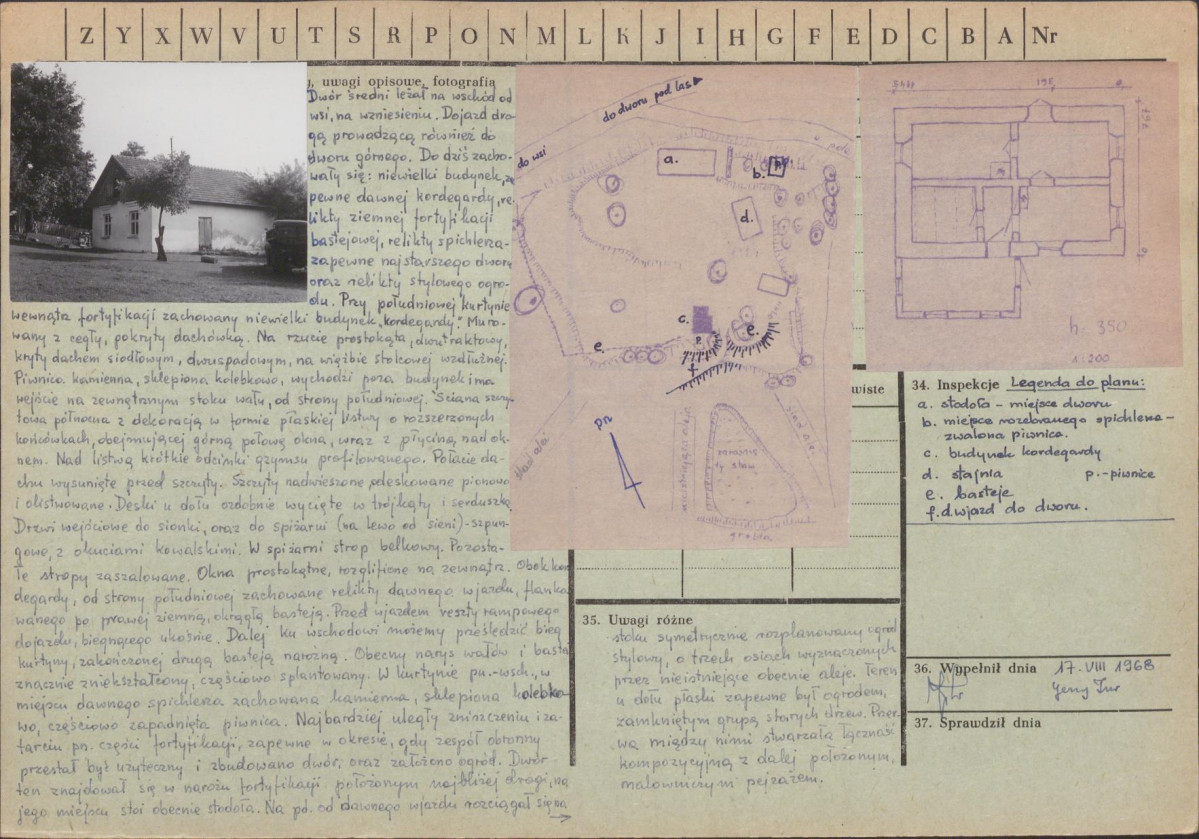 Z Y X W V U T S R P O N M L K J I H G F E D C B A Nr
, uwagi opisowe, fotografia
Dwór średni leżał na wschód od
wsi, na wzniesieniu. Dojazd dro-
gą prowadzącą również do
dworu górnego. Do dziś zacho-
wały się: niewielki budynek, za-
pewne dawnej kordegardy, re-
likty ziemnej fortyfikacji
bastejowej, relikty spichlerza-
zapewne najstarszego dworu
oraz relikty stylowego ogro-
du. Przy południowej kurtynie
wewnątz fortyfikacji zachowany niewielki budynek „kordegardy." Muro-
wany z cegły, pokryty dachówką. Na rzucie prostokąta, dwutraktowy,
kryty dachem siodłowym, dwuspadowym, na więźbie stolcowej wzdłużnej.
Piwnica kamienna, sklepiona kolebkowo, wychodzi poza budynek i ma
wejście na zewnętrznym stoku wału, od strony południowej. Ściana szczy-
towa północna z dekoracją w formie płaskiej listwy o rozszerzonych
końcówkach, obejmującej górną połowę okna, wraz z płyciną nad ok-
nem. Nad listwą krótkie odcinki gzymsu profilowanego. Połacie da-
chu wysunięte przed szczyty. Szczyty nadwieszone, odeskowane pionowo
i olistwowane. Deski u dołu ozdobnie wycięte w trójkąty i serduszka.
Drzwi wejściowe do sionki, oraz do spiżarni (na lewo od sieni)-szpun-
gowe, z okuciami kowalskimi. W spiżarni strop belkowy. Pozosta-
łe stropy zaszalowane. Okna prostokątne, rozglifione na zewnątrz. Obok kor-
degardy, od strony południowej zachowane relikty dawnego wjazdu, flanko-
wanego po prawej ziemną, okrągłą basteją. Przed wjazdem reszty rampowego
dojazdu, biegnącego ukośnie. Dalej ku wschodowi możemy prześledzić bieg
kurtyny, zakończonej drugą basteją narożną. Obecny narys wałów i bastei
znacznie zniekształcony, częściowo splantowany. W kurtynie pn.-wsch., w
miejscu dawnego spichlerza zachowana kamienna, sklepiona kolebko-
wo, częściowo zapadnięta piwnica. Najbardziej uległy zniszczeniu i za-
tarciu pn. części fortyfikacji, zapewne w okresie, gdy zespół obronny
przestał być użyteczny i zbudowano dwór, oraz założono ogród. Dwór-
ten znajdował się w narożu fortyfikacji położonym najbliżej drogi, na
jego miejscu stoi obecnie stodoła. Na pd. od dawnego wjazdu rozciągał się na
→
do wsi
do dworu pod las
a.
b.
d.
c.
e.
p
e.
f
pn
195
h. 350
1:200
wiste
34. Inspekcje Legenda do planu:
a. stodoła - miejsce dworu
b. miejsce rozebranego spichlerza-
zwalona piwnica.
c. budynek kordegardy
d. stajnia p.-piwnice
e. basteje
f. d. wjazd do dworu.
35. Uwagi różne
stoku symetrycznie rozplanowany ogród
stylowy, o trzech osiach wyznaczonych
przez nieistniejące obecnie aleje. Teren
u dołu płaski zapewne był ogrodem,
zamkniętym grupą starych drzew. Przer-
wa między nimi stwarzała łączność
kompozycyjną z dalej położonym,
malowniczym pejzażem.
36. Wypełnił dnia 17. VIII 1968
37. Sprawdził dnia